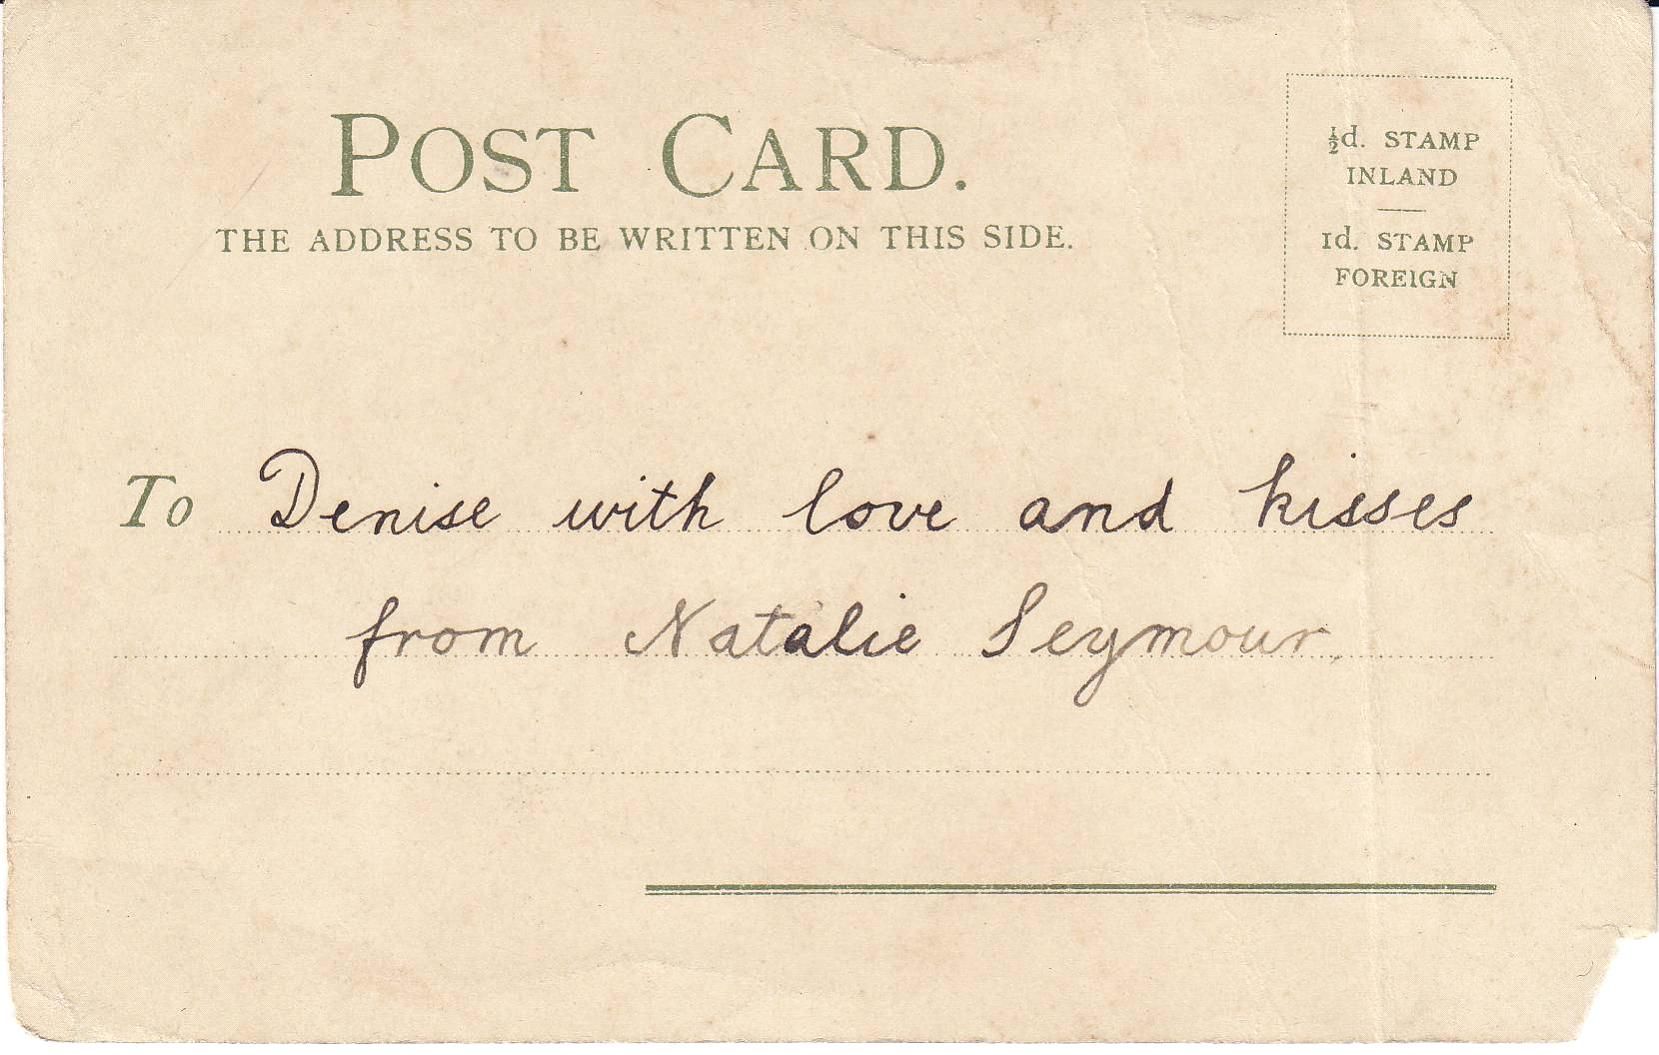 POST CARD.
THE ADDRESS TO BE WRITTEN ON THIS SIDE.
½d. STAMP
INLAND
1d. STAMP
FOREIGN
To Denise with love and kisses
from Natalie Seymour.